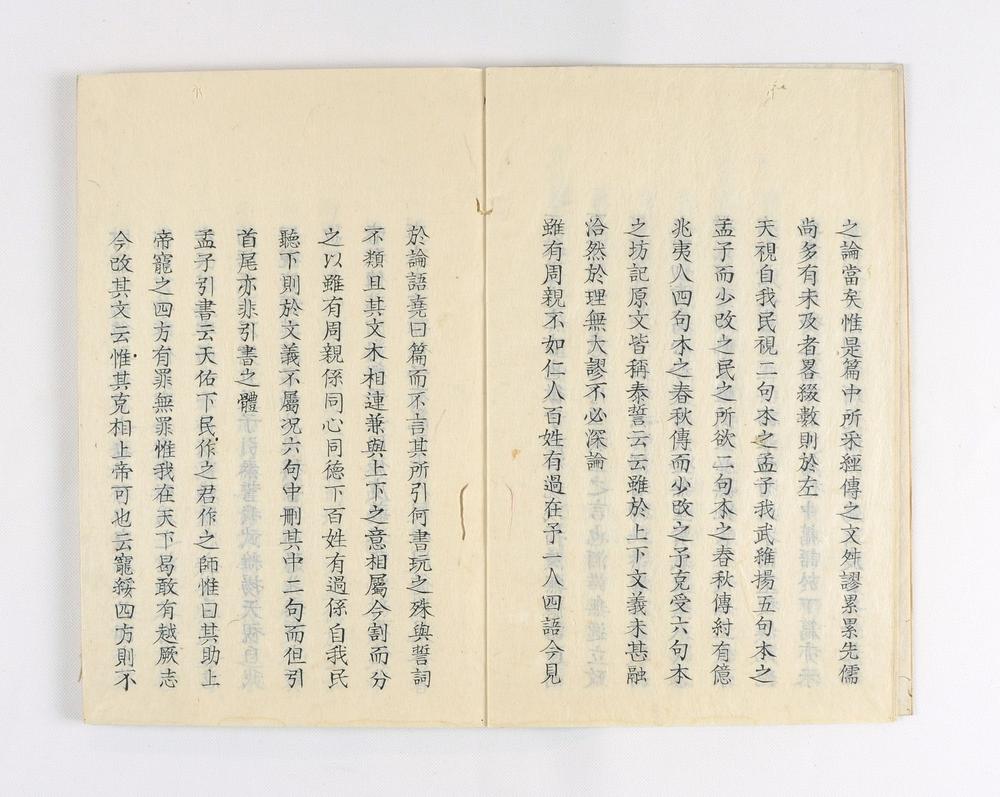 之論當矣惟是篇中所采經傳之文舛謬累累先儒
尚多有未及者畧綴數則於左
天視自我民視二句本之孟子我武維揚五句本之
孟子而少改之民之所欲二句本之春秋傳紂有億
兆夷人四句本之春秋傳而少改之予克受六句本
之坊記原文皆稱泰誓云云雖於上下文義未甚融
洽然於理無大謬不必深論
雖有周親不如仁人百姓有過在予一人四語今見
於論語堯曰篇而不言其所引何書玩之殊與誓詞
不類且其文木相連兼與上下之意相屬今割而分
之以雖有周親係同心同德下百姓有過係自我民
聽下則於文義不屬况六句中刪其中二句而但引
首尾亦非引書之體
孟子引書云天佑下民作之君作之師惟曰其助上
帝寵之四方有罪無罪惟我在天下曷敢有越厥志
今改其文云惟其克相上帝可也云寵綏四方則不